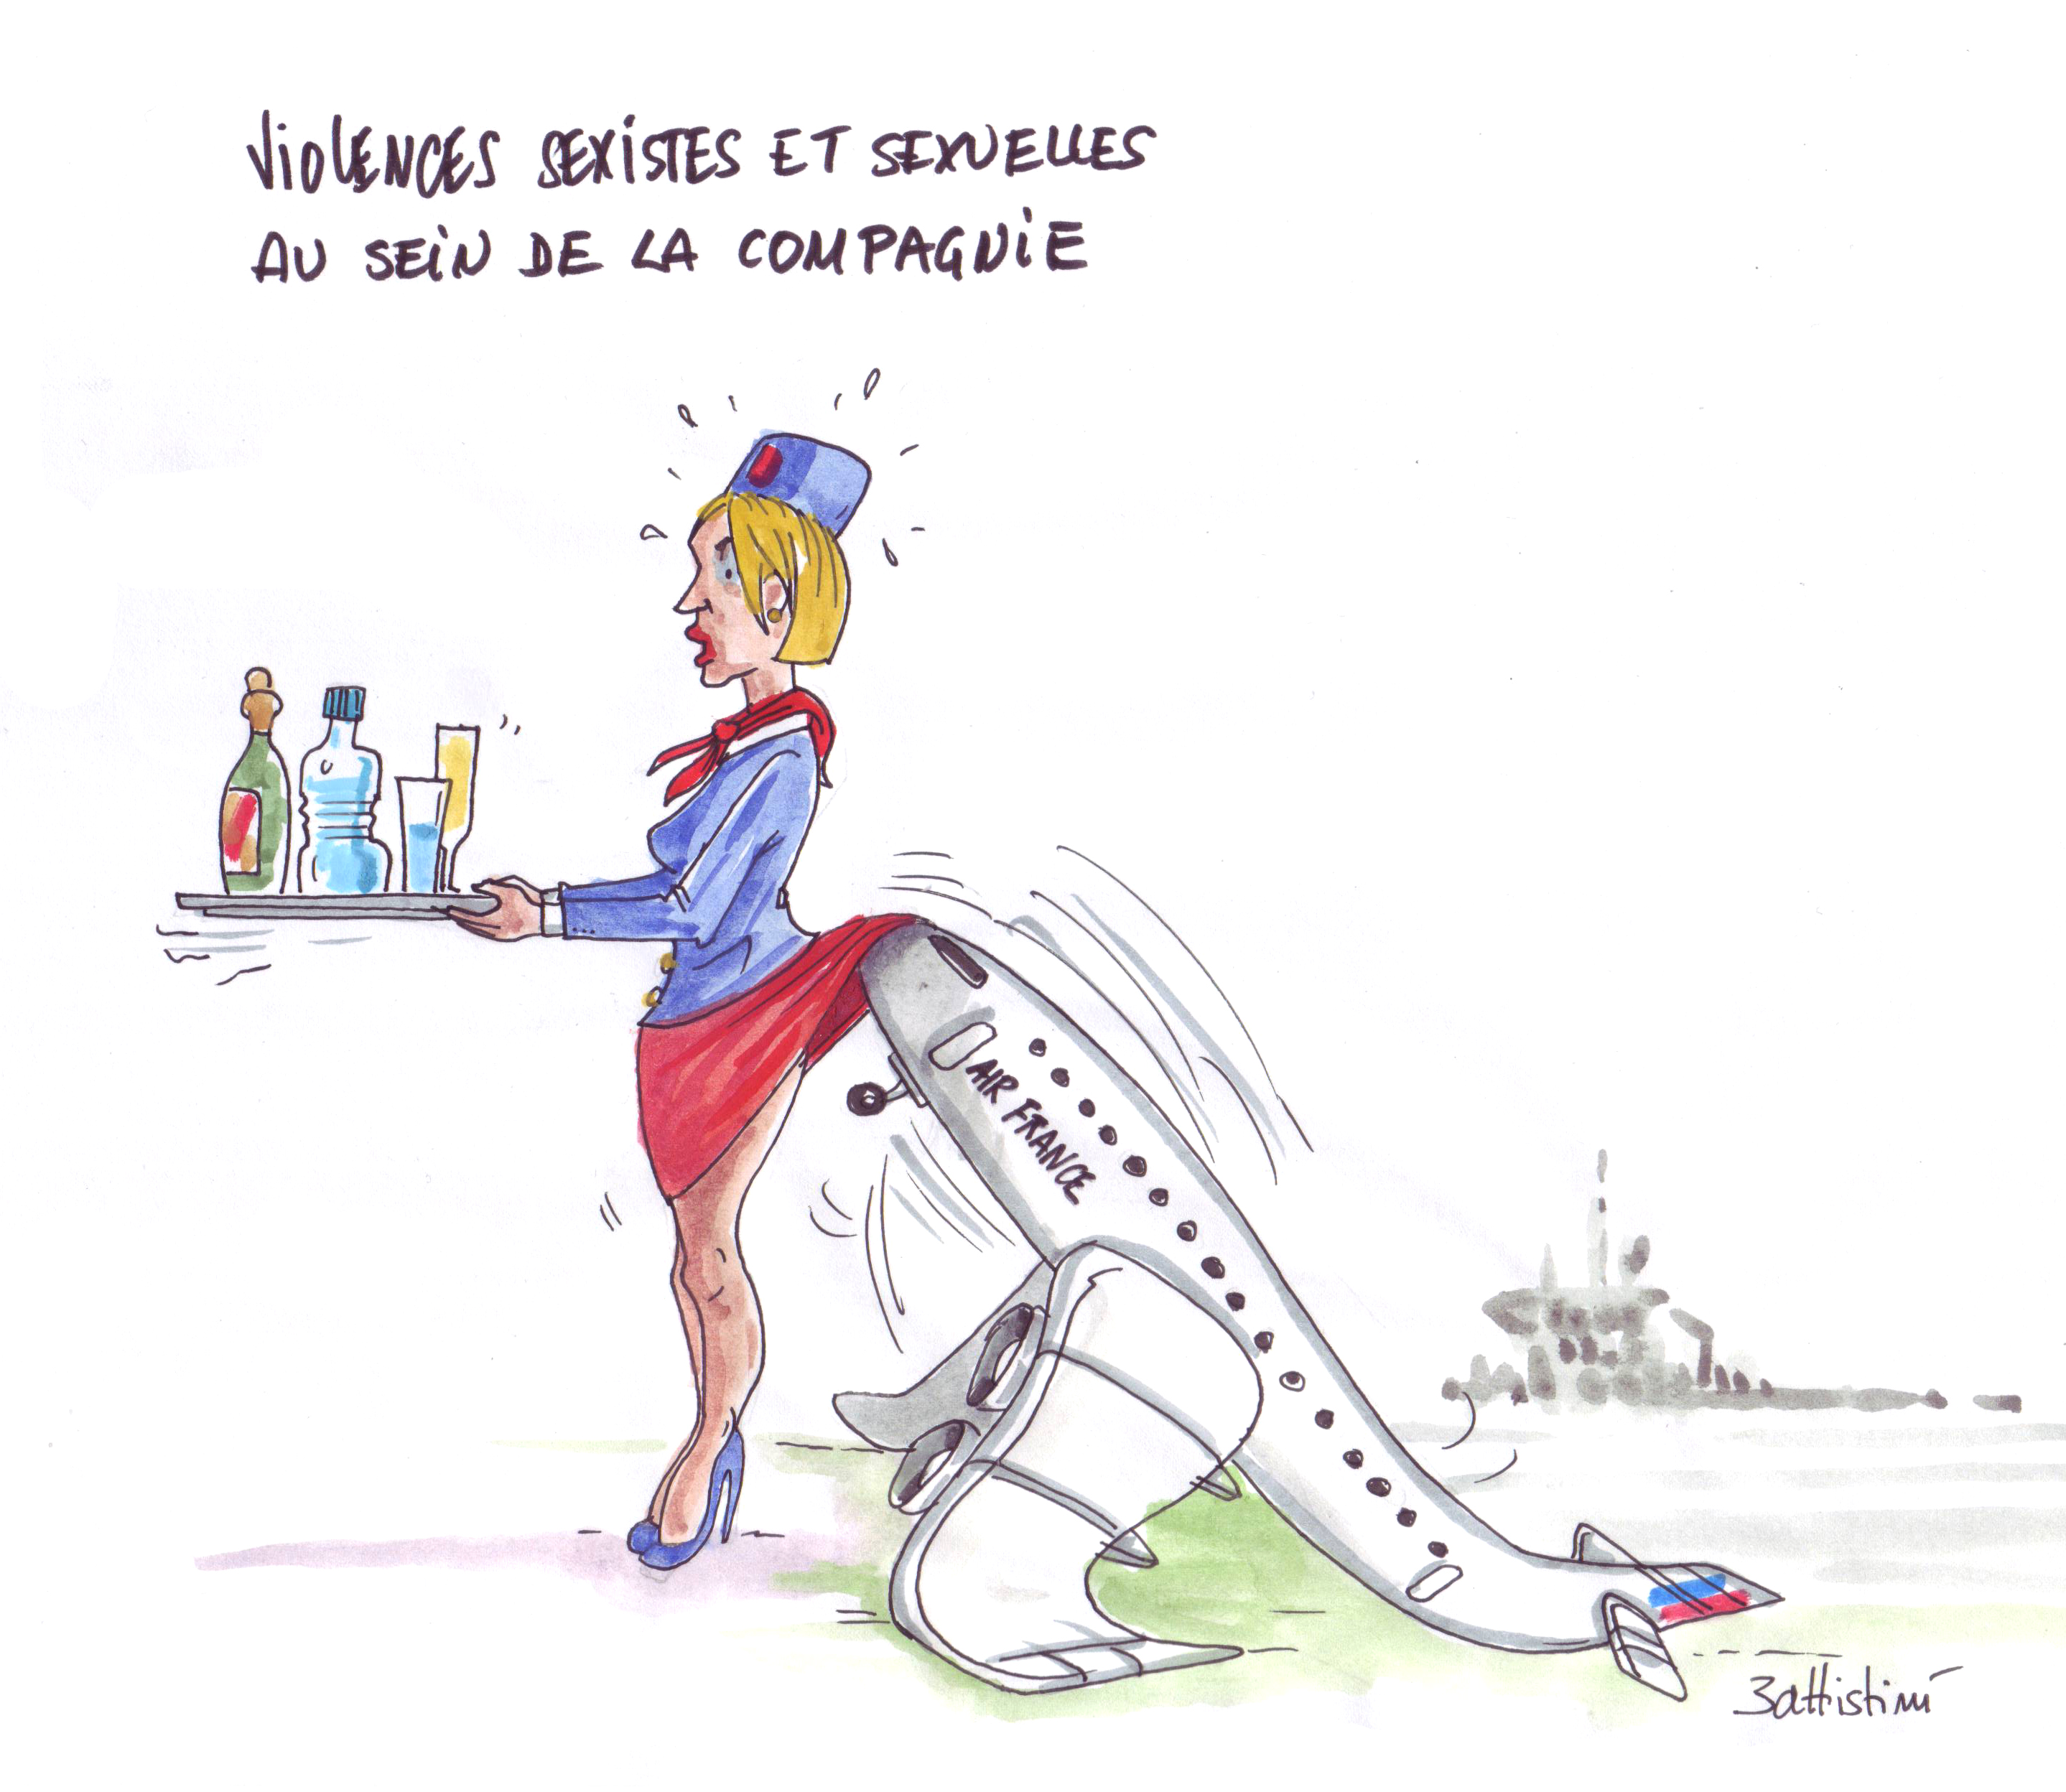 VIOLENCES SEXISTES ET SEXUELLES
AU SEIN DE LA COMPAGNIE
AIR FRANCE
Battistini